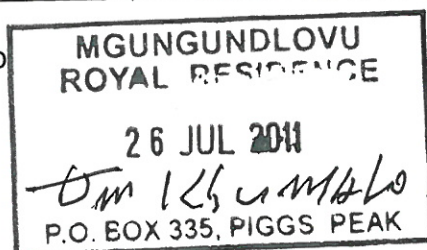 MGUNGUNDLOVU
ROYAL RESIDENCE
26 JUL 2011
Khumalo
P.O. BOX 335, PIGGS PEAK